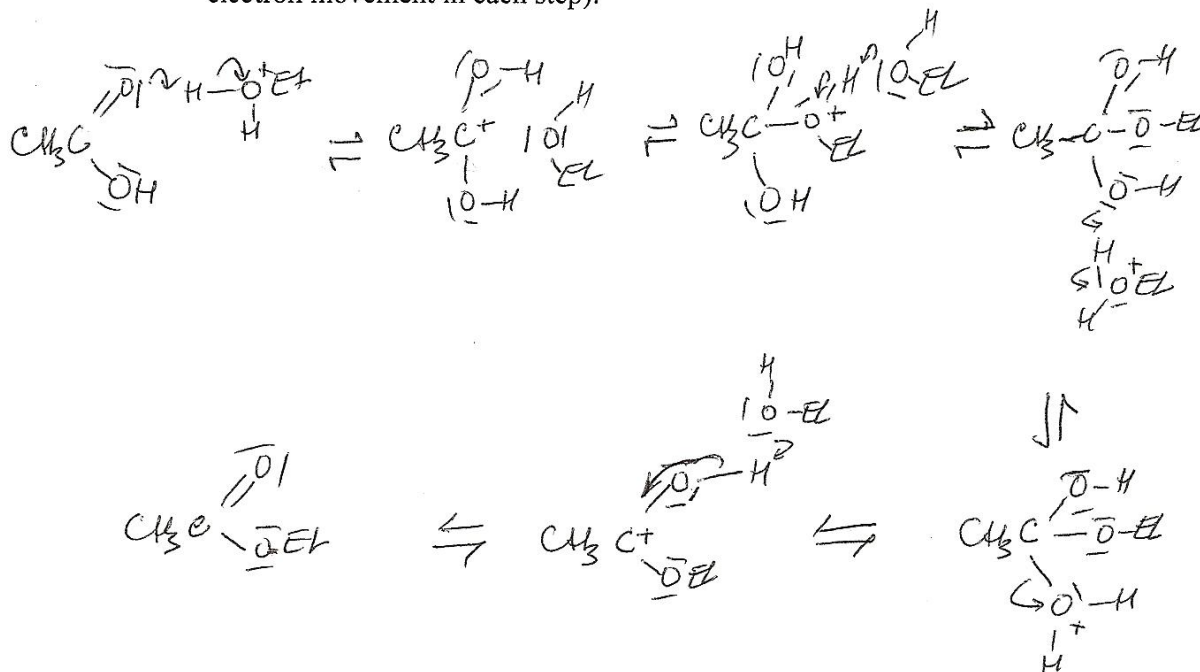 electron movement in each step).
CH3C O H-O+Et H OH ⇌ CH3C+ O-H O-H H O Et ⇌ CH3C OH O+ H Et OH H O Et ⇌ CH3-C O-H O-Et O-H H O+Et H
⇌
CH3C O OEt ⇌ CH3C+ O-H OEt H O-Et ⇌ CH3C O-H O-Et O+-H H